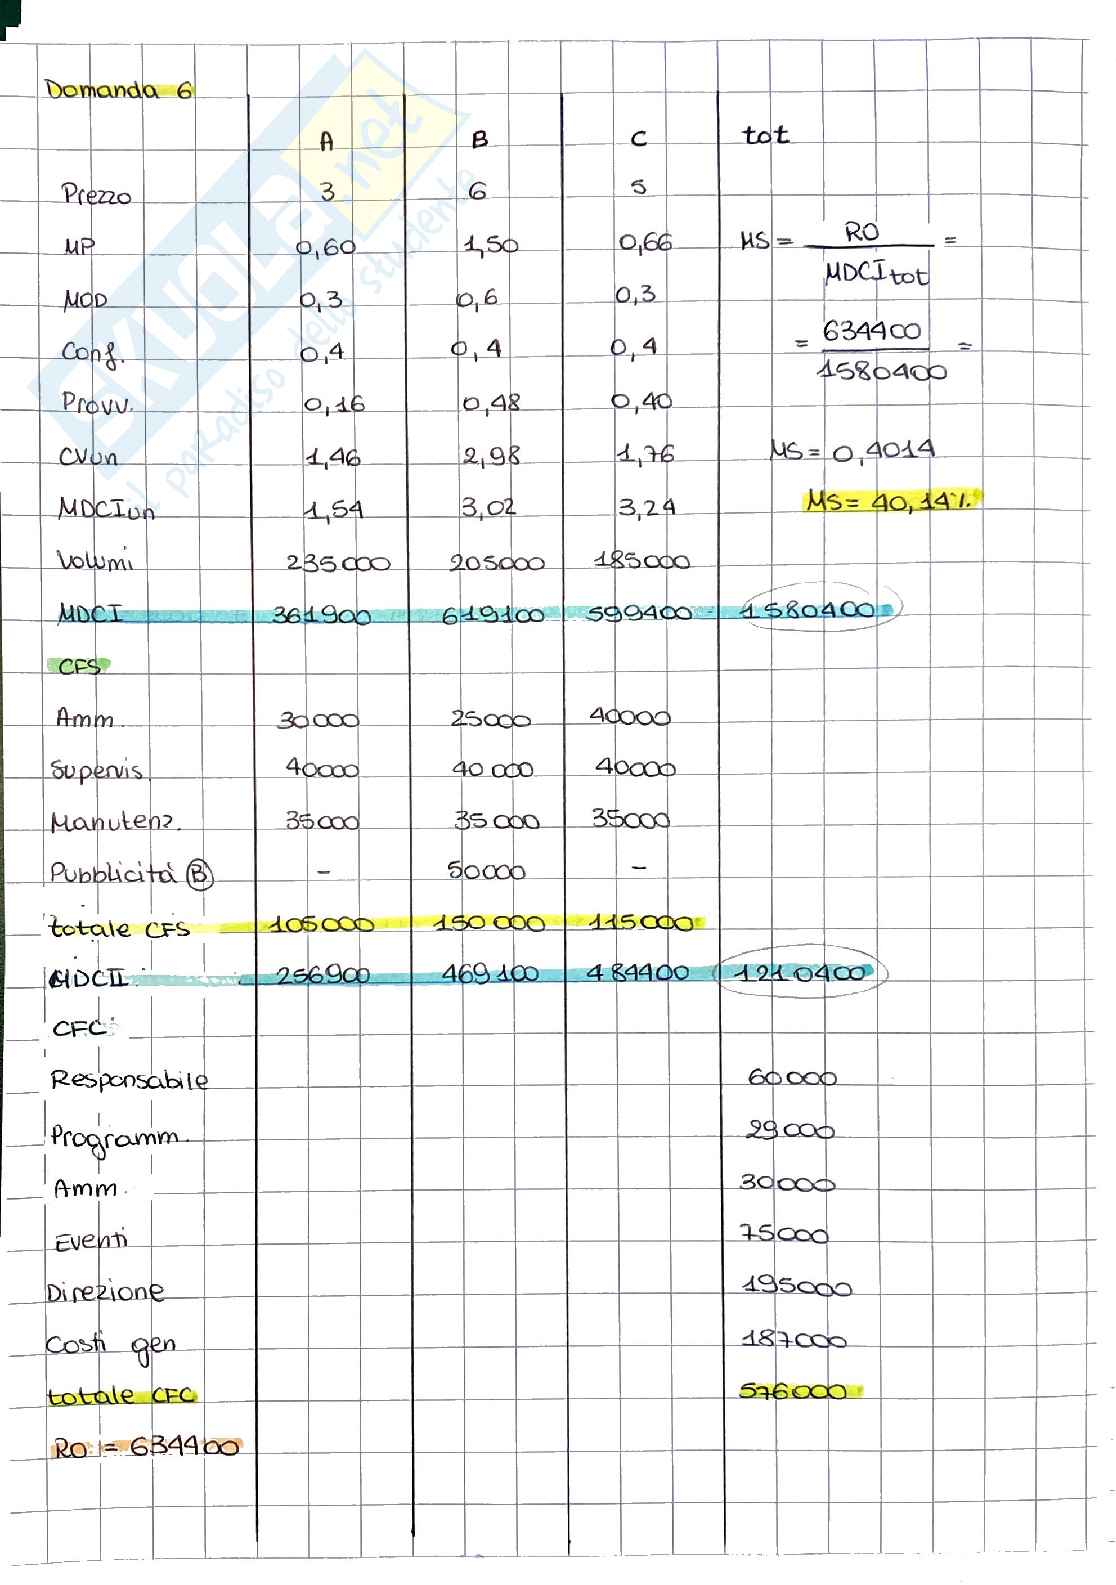 Domanda 6
A B C tot
Prezzo 3 6 5
MP 0,60 1,50 0,66 MS = RO / MDCI tot =
MOD 0,3 0,6 0,3
Conf. 0,4 0,4 0,4 = 634400 / 1580400 =
Provv. 0,16 0,48 0,40
CVun 1,46 2,98 1,76 MS = 0,4014
MDCIun 1,54 3,02 3,24 MS = 40,14%
Volumi 235000 205000 185000
MDCI 361900 619100 599400 1580400
CFS
Amm. 30000 25000 40000
Supervis. 40000 40000 40000
Manutenz. 35000 35000 35000
Pubblicità B - 50000 -
totale CFS 105000 150000 115000
MDCII 256900 469100 484400 1210400
CFC
Responsabile 60000
Programm. 29000
Amm. 30000
Eventi 75000
Direzione 195000
Costi gen 187000
totale CFC 576000
RO = 634400
SKUOLA.net
il paradiso dello studente